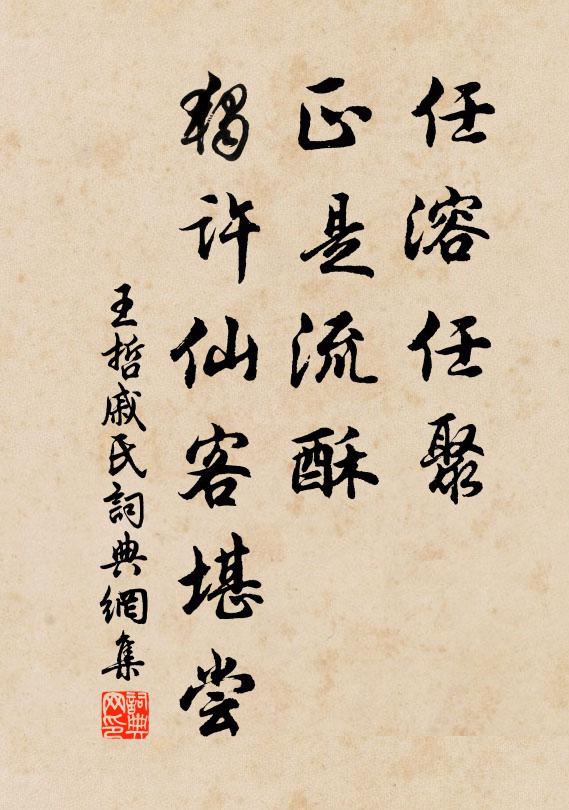 任溶任聚
正是流酥
独许仙客堪尝
王哲戚氏詞典網集
詞典
网印